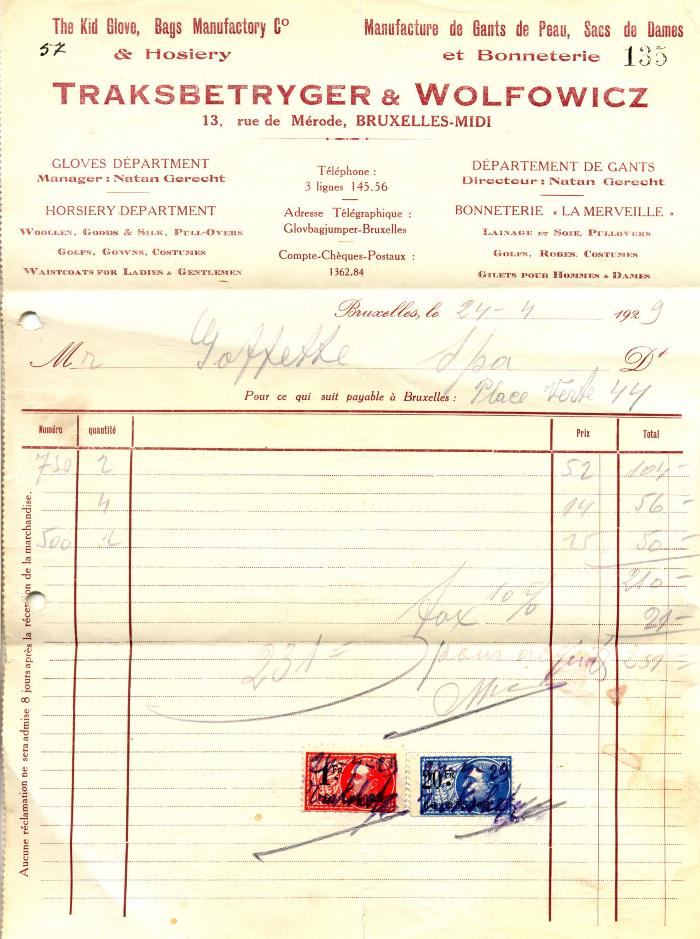 The Kid Glove, Bags Manufactory Cº
& Hosiery
57
Manufacture de Gants de Peau, Sacs de Dames
et Bonneterie 135
TRAKSBETRYGER & WOLFOWICZ
13, rue de Mérode, BRUXELLES-MIDI
GLOVES DÉPARTMENT
Manager : Natan Gerecht
HORSIERY DEPARTMENT
WOOLLEN, GOODS & SILK, PULL-OVERS
GOLFS, GOWNS, COSTUMES
WAISTCOATS FOR LADIES & GENTLEMEN
Téléphone :
3 lignes 145.56
Adresse Télégraphique :
Glovbagjumper-Bruxelles
Compte-Chèques-Postaux :
1362.84
DÉPARTEMENT DE GANTS
Directeur : Natan Gerecht
BONNETERIE « LA MERVEILLE »
LAINAGE ET SOIE, PULLOVERS
GOLFS, ROBES, COSTUMES
GILETS POUR HOMMES & DAMES
Bruxelles, le 24-4 1929
Mr Goffette Spa Dt
Pour ce qui suit payable à Bruxelles : Place Verte 44
Numéro quantité Prix Total
730 2 52 104-
4 14 56-
500 2 25 50-
210-
tax 10% 21-
231= pour acquit 231-
1 FR
20 FR
Aucune réclamation ne sera admise 8 jours après la réception de la marchandise.